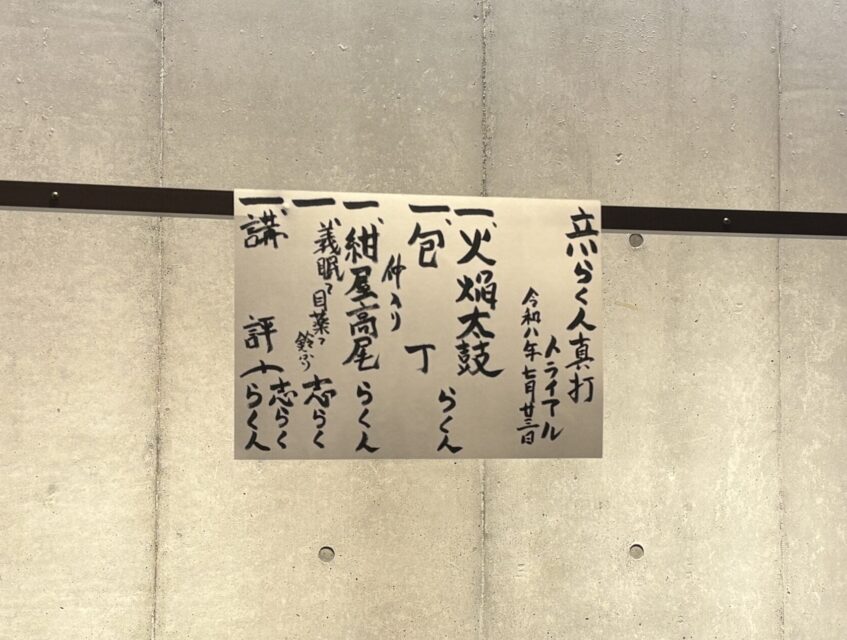 立川らく人真打
トライアル
令和八年七月廿三日
一、火焔太鼓
一、包丁
らく人
仲入り
一、紺屋高尾 らく人
一、義眠〜目薬〜鈴ふり 志らく
一、講評 志らく
らく人